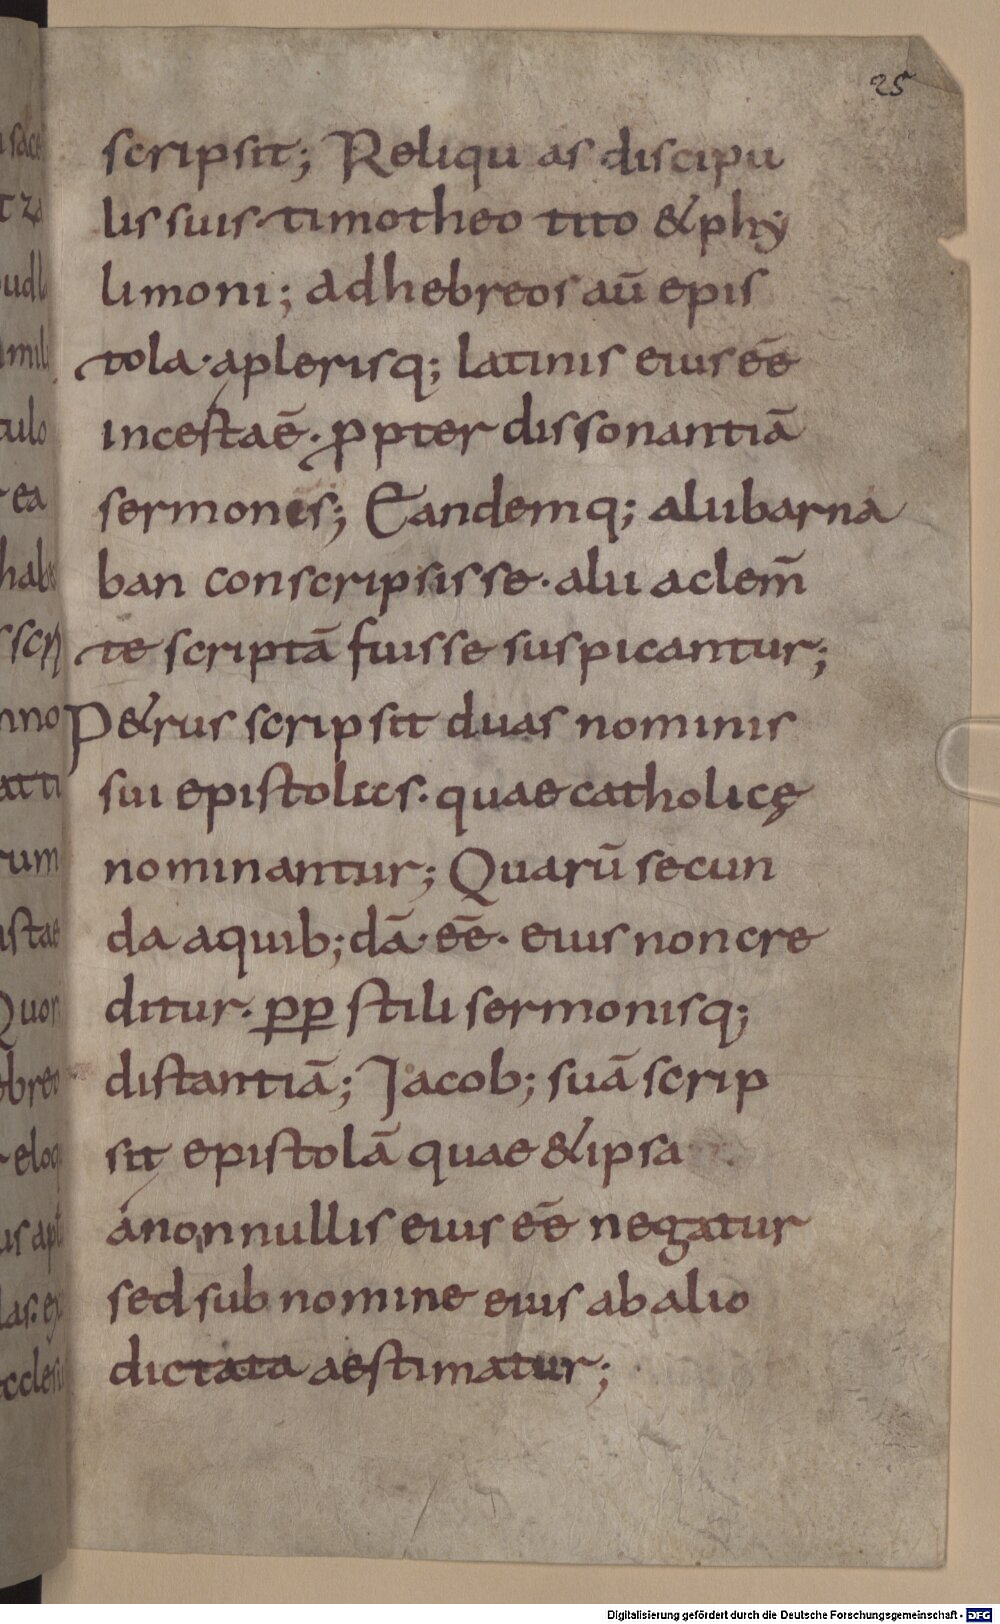 25
scripsit; Reliqu as discipu
lis suis· timotheo tito & phy
limoni; ad hebreos aū epis
tola· aplerisq; latinis eius eē
incesta ē· ꝓpter dissonantiā
sermones; Eandemq; alii barna
ban conscripsisse· alii a clem̄
te scriptā fuisse suspicantur;
P&rus scripsit duas nominis
sui epistolas· quae catholicę
nominantur; Quarū secun
da a quib; dā· eē· eius non cre
ditur· ꝑꝑ stili sermonisq;
distantiā; Jacob; suā scrip
sit epistolā quae & ipsa
á nonnullis eius eē negatur
sed sub nomine eius ab alio
dictata aestimatur;
Digitalisierung gefördert durch die Deutsche Forschungsgemeinschaft - DFG